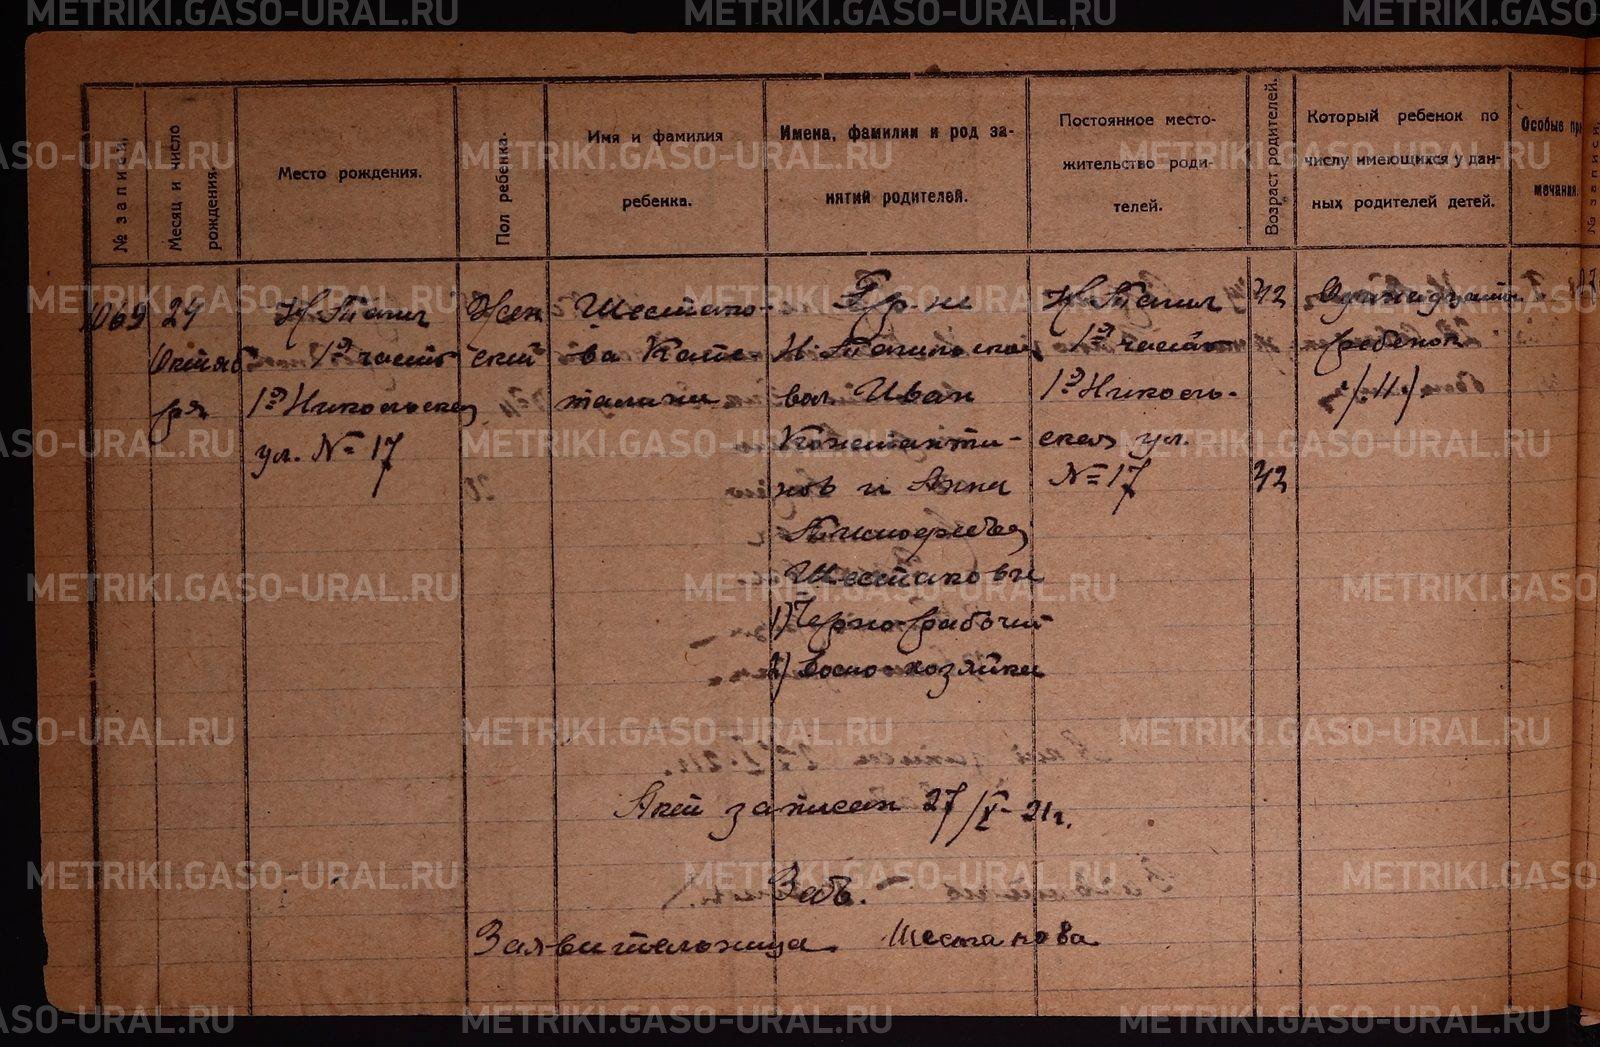 METRIKI.GASO-URAL.RU
№ записи.
Месяц и число
рождения.
Место рождения.
Пол ребенка.
Имя и фамилия
ребенка.
Имена, фамилии и род за-
нятий родителей.
Постоянное место-
жительство роди-
телей.
Возраст родителей.
Который ребенок по
числу имеющихся у дан-
ных родителей детей.
Особые при
мечания.
№ записи.
1069
24
Октяб
ря
Н-Тагил
1я часть
1я Никольская
ул. № 17
Жен
ский
Шестако-
ва Капи
талина
Гр-не
Н-Тагильской
вол. Иван
Константи-
нов и Анна
Шестаковы
1) Черно-рабочий
2) домо-хозяйка
Н-Тагил
1я часть
1я Николь-
ская ул.
№ 17
42
42
Одинадцатый
ребенок
/11/
Акт записан 27/X-21г.
Зав.
Заявительница Шестакова